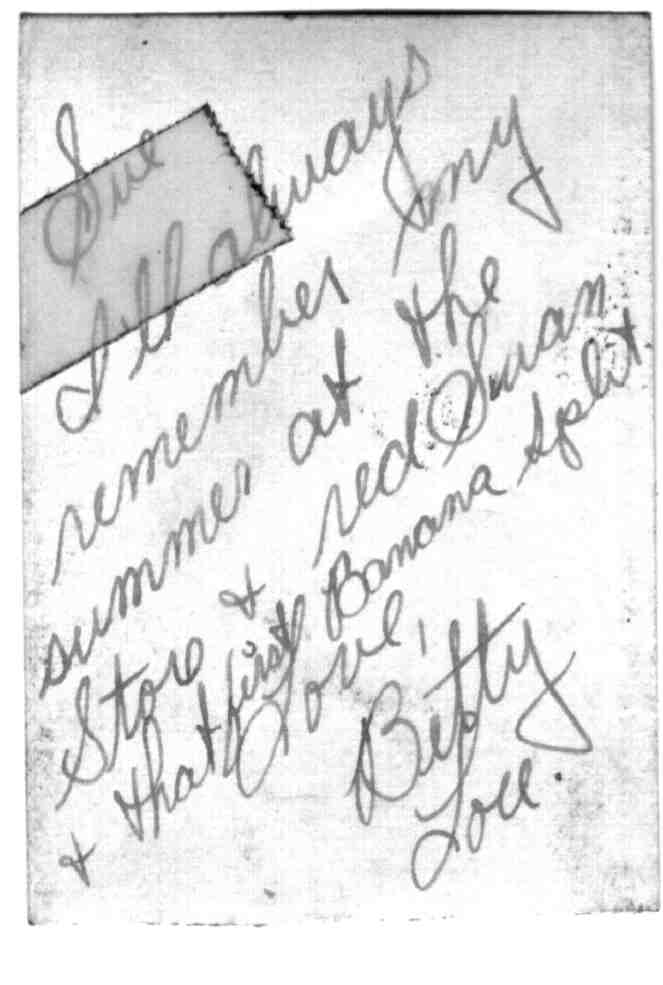 Sue
I'll always
remember my
summer at the
Store & red Swan
& that first Banana Split
Love,
Betty
Lou.